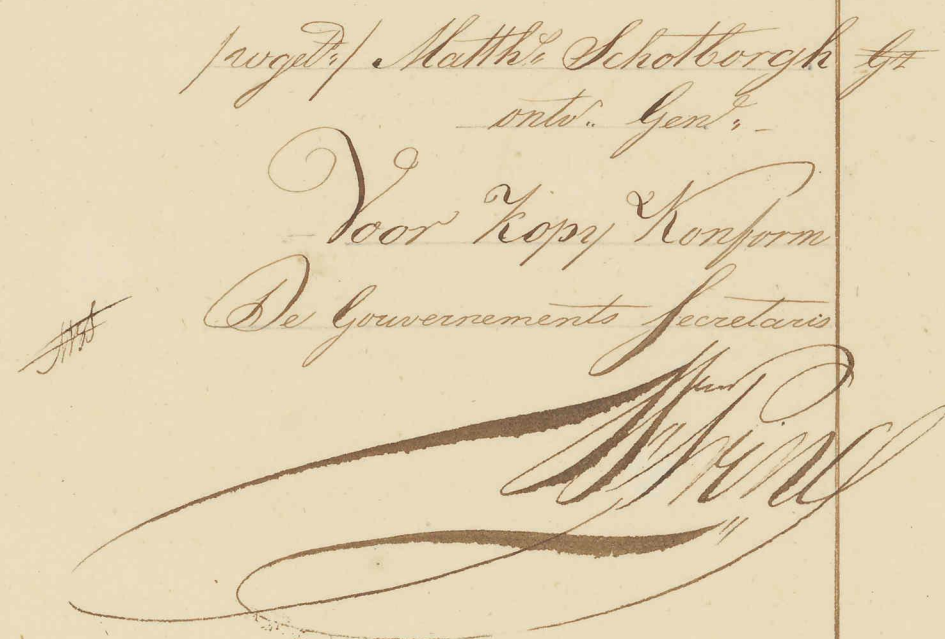 /wgetd:/ Matths Schotborgh Gz
ontv: Genl:
Voor Kopy Konform
De Gouvernements Secretaris